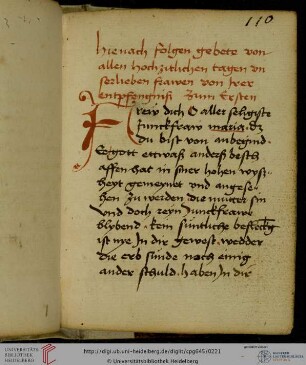 110
hienach folgen gebete von
allen hochzitlichen tagen vn
ser lieben frawen von jrer
entpfengniß Zum Ersten
Frew dich O aller seligiste
Junckfraw maria dz
du bist von anbegind
Ee got etwaß anderß besch
affen hat in siner hohen vyrsi
heyt gemeynet vnd angese
hen zu werden die mutter sin
Vnd doch reyn Junckfraw
blybend. kein süntliche
ist nye In dir gewest. wedder
die erb sünde noch einig
ander schuld. haben In dir
UNIVERSITÄTS
BIBLIOTHEK
HEIDELBERG
http://digi.ub.uni-heidelberg.de/diglit/cpg645/0221
Universitätsbibliothek Heidelberg